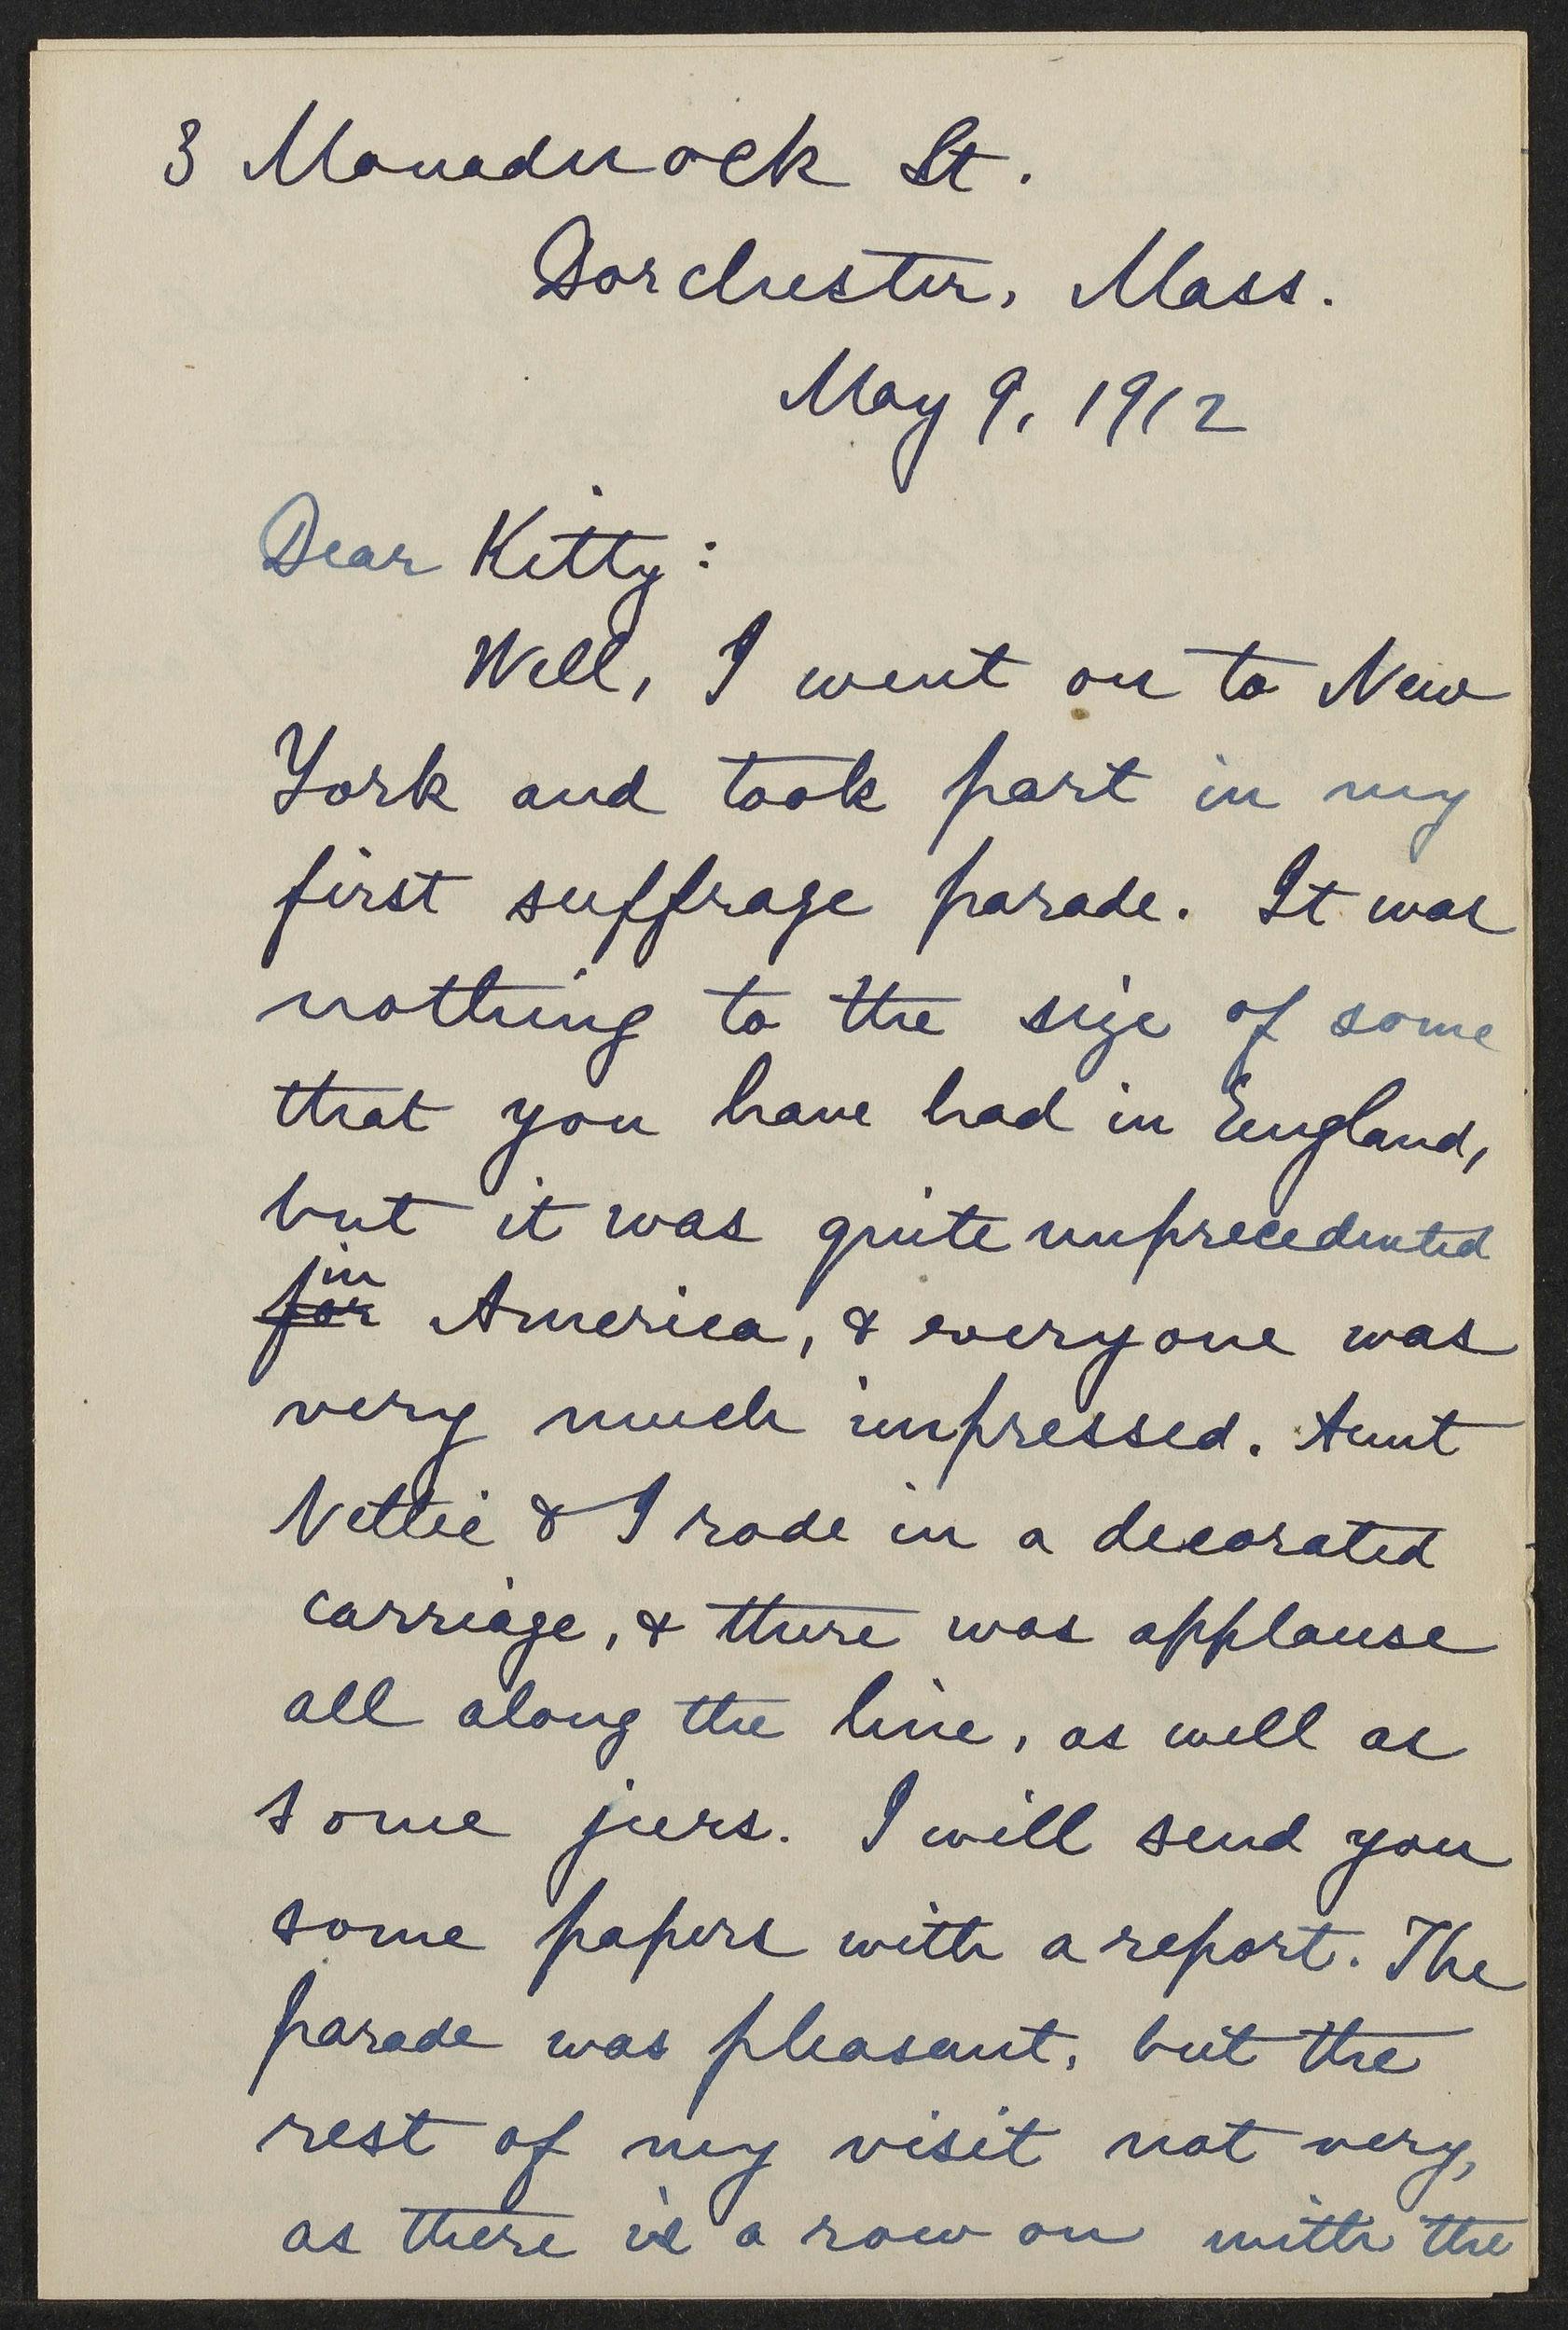 3 Monadnock St.
Dorchester, Mass.
May 9, 1912
Dear Kitty:
Well, I went on to New
York and took part in my
first suffrage parade. It was
nothing to the size of some
that you have had in England,
but it was quite unprecedented
in
for America, & everyone was
very much impressed. Aunt
Nettie & I rode in a decorated
carriage, & there was applause
all along the line, as well as
some jeers. I will send you
some papers with a report. The
parade was pleasant, but the
rest of my visit not very,
as there is a row on with the